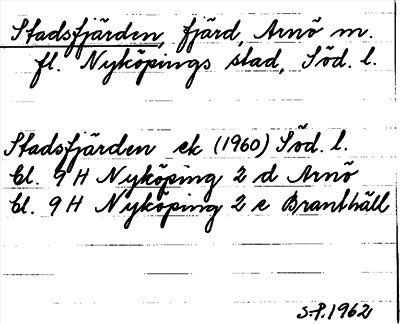 Stadsfjärden, fjärd, Arnö m.
fl. Nyköpings stad, Söd. l.
Stadsfjärden ek (1960) Söd. l.
Bl. 9 H Nyköping 2 d Arnö
Bl. 9 H Nyköping 2 e Branthäll
S.P. 1962